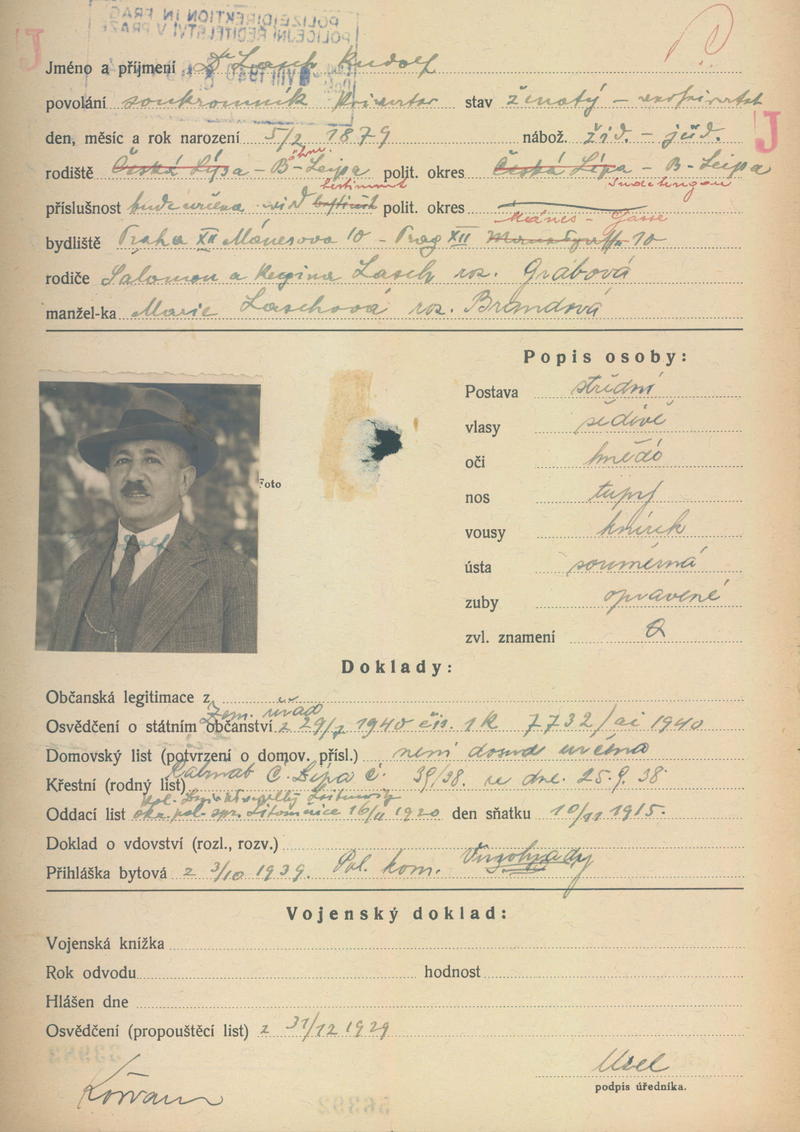 J
Jméno a příjmení Dr Lasch Rudolf
povolání soukromník Privator stav ženatý – verheiratet
den, měsíc a rok narození 5/2 1879 nábož. žid. – jüd.
J
rodiště Česká Lípa – B-Leipa polit. okres Česká Lípa – B-Leipa
Sudetengau
příslušnost bude určena wird bestimmt polit. okres
Mánes - Gasse
bydliště Praha XII Mánesova 10 – Prag XII 10
rodiče Salomon a Regina Lasch roz. Grabová
manžel-ka Marie Laschová roz. Brandová
Popis osoby:
Postava střední
vlasy šedivé
oči hnědé
Foto
nos tupý
vousy knírek
ústa souměrná
zuby opravené
zvl. znamení
Doklady:
Občanská legitimace z
Zem. úřad
Osvědčení o státním občanství z 29/7 1940 čís. 1k 7732/ai 1940
Domovský list (potvrzení o domov. přísl.) není dosud určena
Křestní (rodný list) C. Lípa č. 39/38. ze dne. 25.9.38
Oddací list okr. pol. spr. Litoměřice 16/11 1920 den sňatku 10/11 1915.
Doklad o vdovství (rozl., rozv.)
Přihláška bytová z 3/10 1939. Pol. kom. Vinohrady
Vojenský doklad:
Vojenská knížka
Rok odvodu hodnost
Hlášen dne
Osvědčení (propouštěcí list) z 31/12 1929
podpis úředníka.